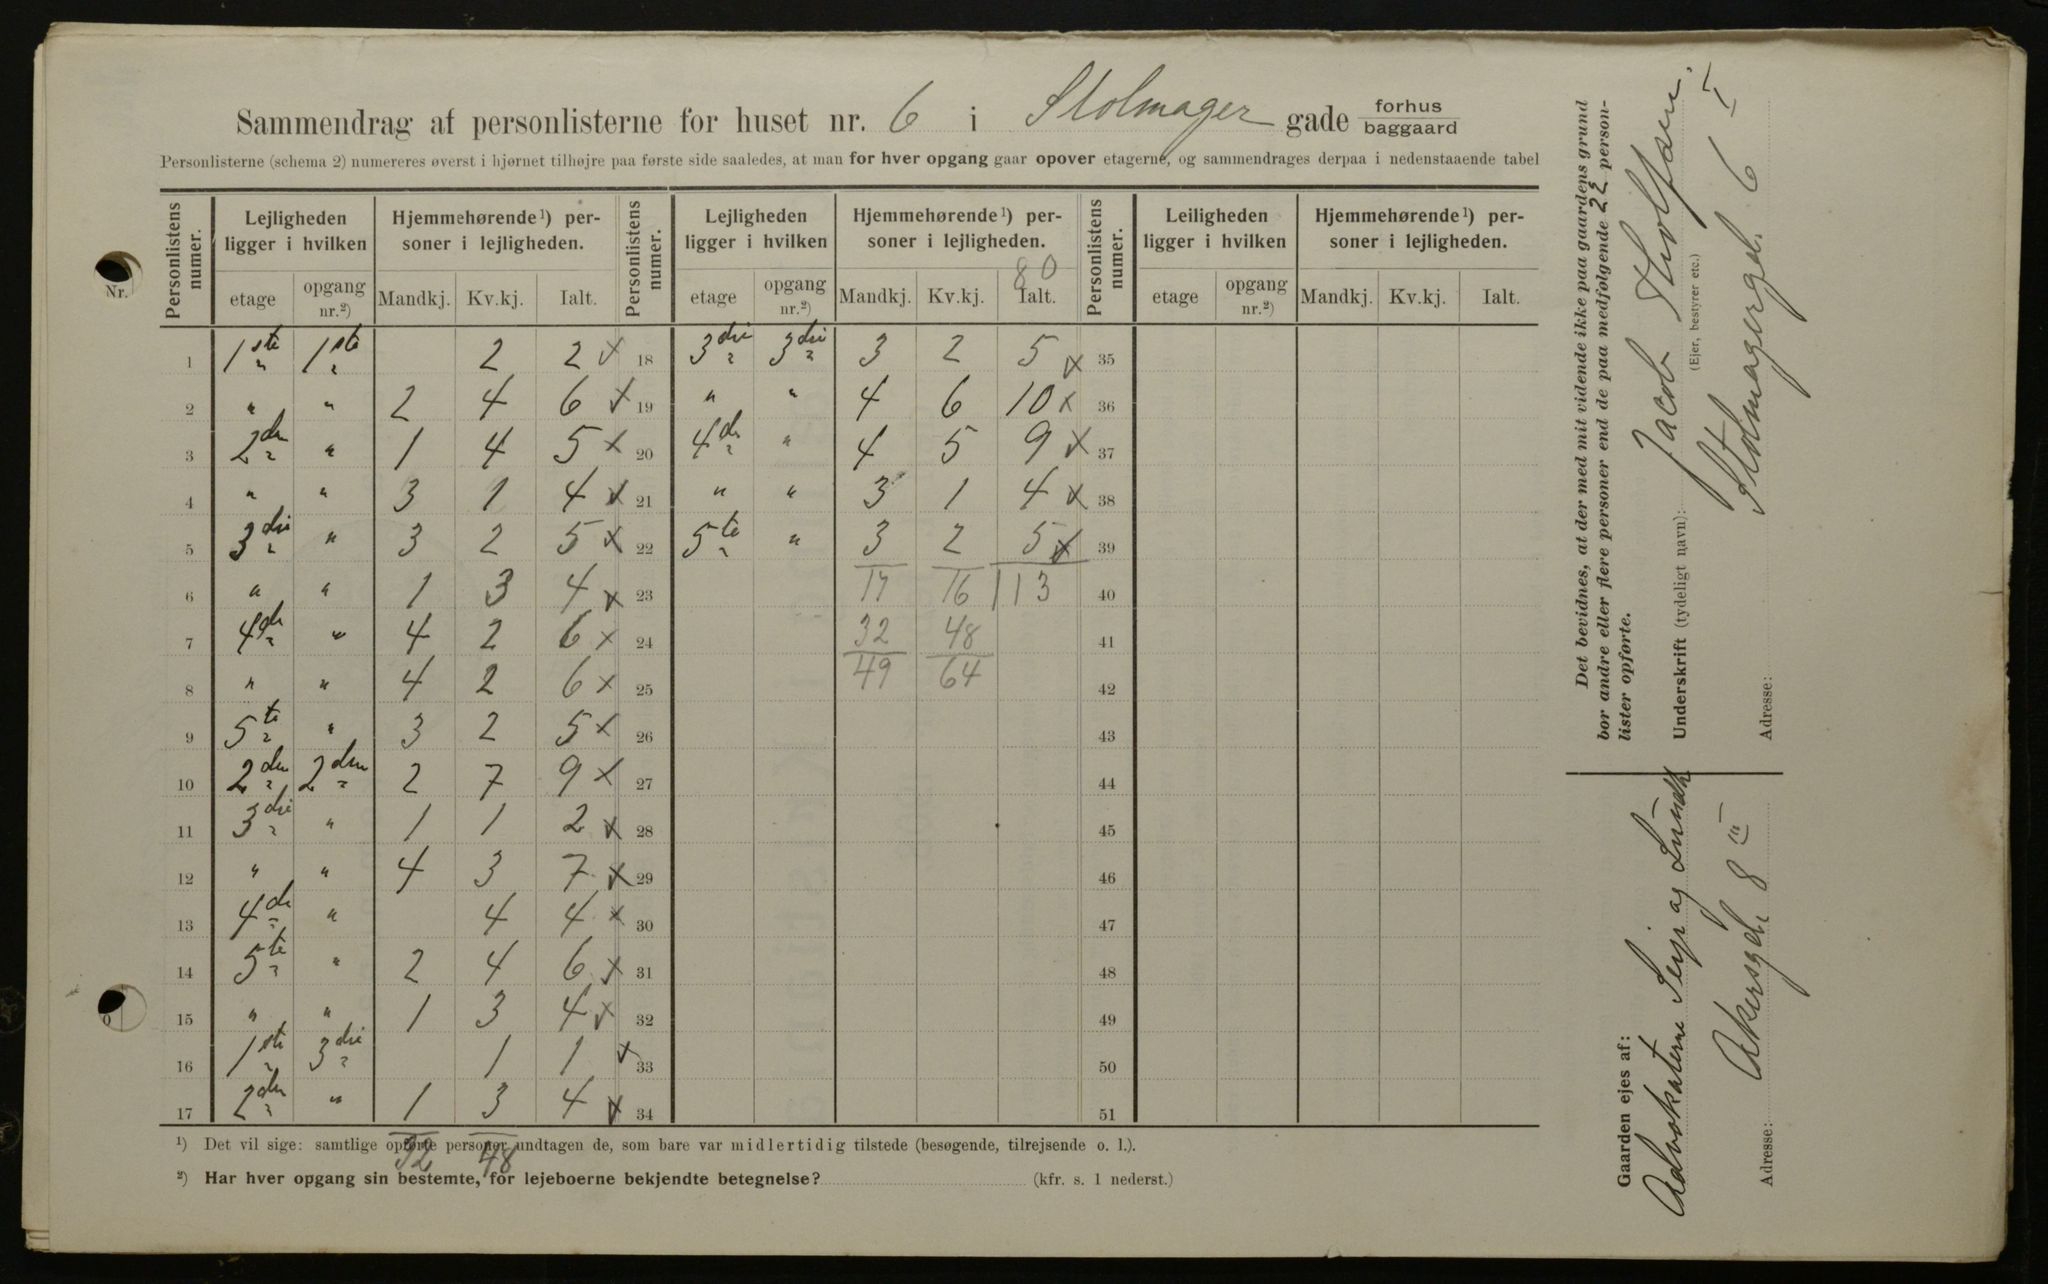 Sammendrag af personlisterne for huset nr. 6 i Stolmager gade forhus baggaard
Personlisterne (schema 2) numereres øverst i hjørnet tilhøjre paa første side saaledes, at man for hver opgang gaar opover etagerne, og sammendrages derpaa i nedenstaaende tabel
Personlistens numer. Lejligheden ligger i hvilken Hjemmehørende¹) personer i lejligheden. Personlistens numer. Lejligheden ligger i hvilken Hjemmehørende¹) personer i lejligheden. Personlistens numer. Leiligheden ligger i hvilken Hjemmehørende¹) personer i lejligheden.
80
Nr. etage opgang nr.²) Mandkj. Kv.kj. Ialt. etage opgang nr.²) Mandkj. Kv.kj. Ialt. etage opgang nr.²) Mandkj. Kv.kj. Ialt.
1 1ste 1ste 2 2 x 18 3die 3die 3 2 5 x 35
2 " " 2 4 6 x 19 " " 4 6 10 x 36
3 2den " 1 4 5 x 20 4de " 4 5 9 x 37
4 " " 3 1 4 x 21 " " 3 1 4 x 38
5 3die " 3 2 5 x 22 5te " 3 2 5 x 39
6 " " 1 3 4 x 23 17 16 113 40
7 4de " 4 2 6 x 24 32 48 41
8 " " 4 2 6 x 25 49 64 42
9 5te " 3 2 5 x 26 43
10 2den 2den 2 7 9 x 27 44
11 3die " 1 1 2 x 28 45
12 " " 4 3 7 x 29 46
13 4de " 4 4 x 30 47
14 5te " 2 4 6 x 31 48
15 " " 1 3 4 x 32 49
16 1ste 3die 1 1 x 33 50
17 2den " 1 3 4 x 34 51
¹) Det vil sige: samtlige opførte personer undtagen de, som bare var midlertidig tilstede (besøgende, tilrejsende o. l.).
32 48
²) Har hver opgang sin bestemte, for lejeboerne bekjendte betegnelse? (kfr. s. 1 nederst.)
Det bevidnes, at der med mit vidende ikke paa gaardens grund
bor andre eller flere personer end de paa medfølgende 22 person-
lister opførte.
Underskrift (tydeligt navn): Jacob
(Ejer, bestyrer etc.)
Stolmagergd. 6 I
Adresse:
Gaarden ejes af:
Advokaterne og
Akersgd. 8 III
Adresse: